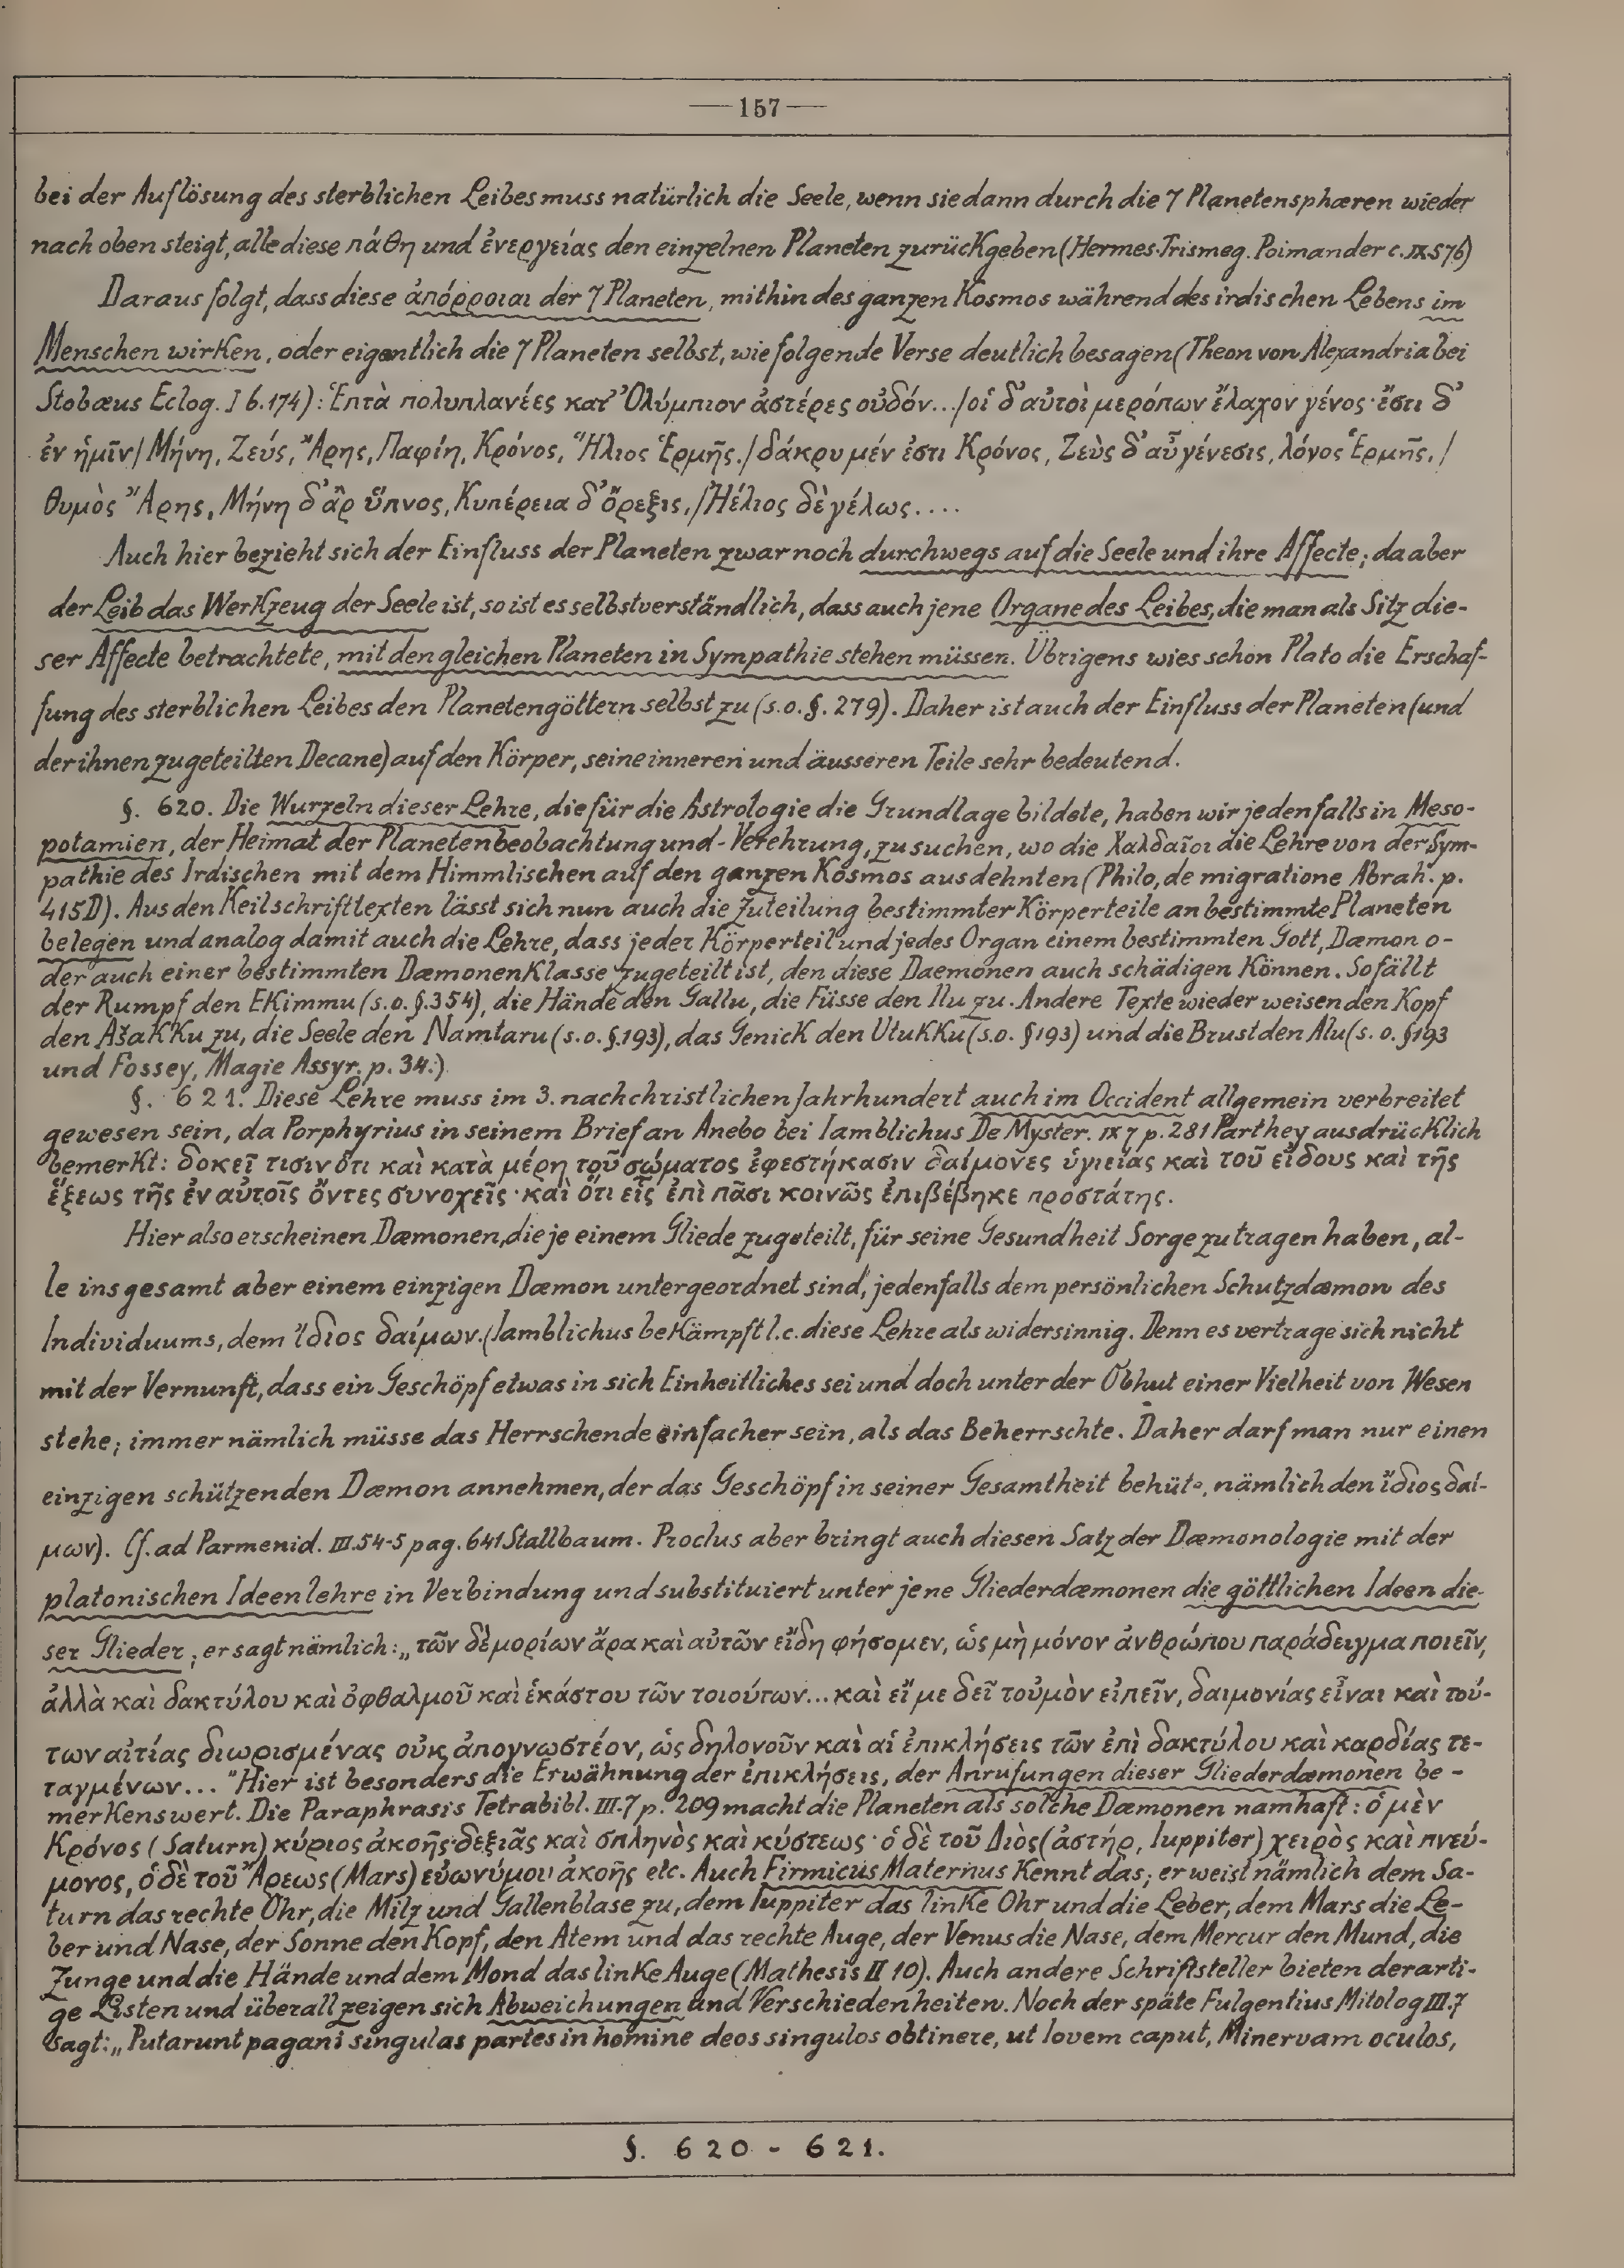 —157—
bei der Auflösung des sterblichen Leibes muss natürlich die Seele, wenn sie dann durch die 7 Planetensphæren wieder
nach oben steigt, alle diese πάθη und ἐνεργείας den einzelnen Planeten zurückgeben (Hermes-Trismeg. Poimander c. IX S 76)
Daraus folgt, dass diese ἀπόρροιαι der 7 Planeten, mithin des ganzen Kosmos während des irdischen Lebens im
Menschen wirken, oder eigentlich die 7 Planeten selbst, wie folgende Verse deutlich besagen (Theon von Alexandria bei
Stobæus Eclog. I 6. 174): Ἑπτὰ πολυπλανέες κατ᾽ Ὀλύμπιον ἀστέρες οὐδόν.../οἱ δ᾽ αὐτοὶ μερόπων ἔλαχον γένος· ἔστι δ᾽
ἐν ἡμῖν/ Μήνη, Ζεύς, Ἄρης, Παφίη, Κρόνος, Ἥλιος Ἑρμῆς./ δάκρυ μέν ἐστι Κρόνος, Ζεὺς δ᾽ αὖ γένεσις, λόγος Ἑρμῆς,/
θυμὸς Ἄρης, Μήνη δ᾽ ἂρ ὕπνος, Κυπέρεια δ᾽ ὄρεξις,/ Ἠέλιος δὲ γέλως....
Auch hier bezieht sich der Einfluss der Planeten zwar noch durchwegs auf die Seele und ihre Affecte; da aber
der Leib das Werkzeug der Seele ist, so ist es selbstverständlich, dass auch jene Organe des Leibes, die man als Sitz die-
ser Affecte betrachtete, mit den gleichen Planeten in Sympathie stehen müssen. Übrigens wies schon Plato die Erschaf-
fung des sterblichen Leibes den Planetengöttern selbst zu (s.o.§. 279). Daher ist auch der Einfluss der Planeten (und
der ihnen zugeteilten Decane) auf den Körper, seine inneren und äusseren Teile sehr bedeutend.
§. 620. Die Wurzeln dieser Lehre, die für die Astrologie die Grundlage bildete, haben wir jedenfalls in Meso-
potamien, der Heimat der Planetenbeobachtung und -Verehrung, zu suchen, wo die Χαλδαῖοι die Lehre von der Sym-
pathie des Irdischen mit dem Himmlischen auf den ganzen Kosmos ausdehnten (Philo, de migratione Abrah. p.
415D). Aus den Keilschrifttexten lässt sich nun auch die Zuteilung bestimmter Körperteile an bestimmte Planeten
belegen und analog damit auch die Lehre, dass jeder Körperteil und jedes Organ einem bestimmten Gott, Dæmon o-
der auch einer bestimmten Dæmonenklasse zugeteilt ist, den diese Daemonen auch schädigen können. So fällt
der Rumpf den Ekimmu (s.o. §.354), die Hände den Gallu, die Füsse den Ilu zu. Andere Texte wieder weisen den Kopf
den Ašakku zu, die Seele den Namtaru (s.o.§.193), das Genick den Utukku (s.o. §193) und die Brust den Alu (s. o. §193
und Fossey, Magie Assyr. p. 34.)
§. 621. Diese Lehre muss im 3. nachchristlichen Jahrhundert auch im Occident allgemein verbreitet
gewesen sein, da Porphyrius in seinem Brief an Anebo bei Iamblichus De Myster. IX 7 p. 281 Parthey ausdrücklich
bemerkt: δοκεῖ τισιν ὅτι καὶ κατὰ μέρη τοῦ σώματος ἐφεστήκασιν δαίμονες ὑγιείας καὶ τοῦ εἴδους καὶ τῆς
ἕξεως τῆς ἐν αὐτοῖς ὄντες συνοχεῖς· καὶ ὅτι εἷς ἐπὶ πᾶσι κοινῶς ἐπιβέβηκε προστάτης.
Hier also erscheinen Dæmonen, die je einem Gliede zugeteilt, für seine Gesundheit Sorge zu tragen haben, al-
le insgesamt aber einem einzigen Dæmon untergeordnet sind, jedenfalls dem persönlichen Schutzdæmon des
Individuums, dem ἴδιος δαίμων. (Iamblichus bekämpft l.c. diese Lehre als widersinnig. Denn es vertrage sich nicht
mit der Vernunft, dass ein Geschöpf etwas in sich Einheitliches sei und doch unter der Obhut einer Vielheit von Wesen
stehe; immer nämlich müsse das Herrschende einfacher sein, als das Beherrschte. Daher darf man nur einen
einzigen schützenden Dæmon annehmen, der das Geschöpf in seiner Gesamtheit behüte, nämlich den ἴδιος δαί-
μων). Cf. ad Parmenid. III. 54-5 pag. 641 Stallbaum. Proclus aber bringt auch diesen Satz der Dæmonologie mit der
platonischen Ideenlehre in Verbindung und substituiert unter jene Gliederdæmonen die göttlichen Ideen die-
ser Glieder; er sagt nämlich: „τῶν δὲ μορίων ἄρα καὶ αὐτῶν εἴδη φήσομεν, ὡς μὴ μόνον ἀνθρώπου παράδειγμα ποιεῖν,
ἀλλὰ καὶ δακτύλου καὶ ὀφθαλμοῦ καὶ ἑκάστου τῶν τοιούτων... καὶ εἴ με δεῖ τοὐμὸν εἰπεῖν, δαιμονίας εἶναι καὶ τού-
των αἰτίας διωρισμένας οὐκ ἀπογνωστέον, ὡς δηλονοῦν καὶ αἱ ἐπικλήσεις τῶν ἐπὶ δακτύλου καὶ καρδίας τε-
ταγμένων..." Hier ist besonders die Erwähnung der ἐπικλήσεις, der Anrufungen dieser Gliederdæmonen be-
merkenswert. Die Paraphrasis Tetrabibl. III.7 p. 209 macht die Planeten als solche Dæmonen namhaft: ὁ μὲν
Κρόνος (Saturn) κύριος ἀκοῆς δεξιᾶς καὶ σπληνὸς καὶ κύστεως· ὁ δὲ τοῦ Διὸς (ἀστήρ, Iuppiter) χειρὸς καὶ πνεύ-
μονος, ὁ δὲ τοῦ Ἄρεως (Mars) εὐωνύμου ἀκοῆς etc. Auch Firmicus Maternus kennt das; er weist nämlich dem Sa-
turn das rechte Ohr, die Milz und Gallenblase zu, dem Iuppiter das linke Ohr und die Leber, dem Mars die Le-
ber und Nase, der Sonne den Kopf, den Atem und das rechte Auge, der Venus die Nase, dem Mercur den Mund, die
Zunge und die Hände und dem Mond das linke Auge (Mathesis II 10). Auch andere Schriftsteller bieten derarti-
ge Listen und überall zeigen sich Abweichungen und Verschiedenheiten. Noch der späte Fulgentius Mitolog III.7
sagt: „Putarunt pagani singulas partes in homine deos singulos obtinere, ut Iovem caput, Minervam oculos,
§. 620 - 621.